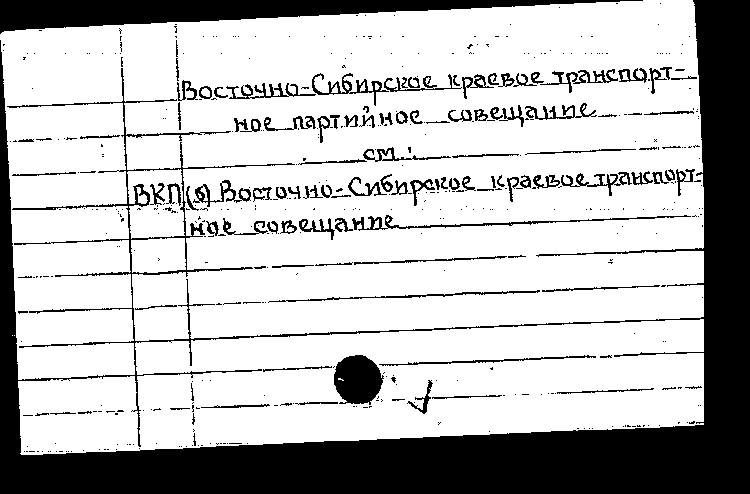 Восточно-Сибирское краевое транспорт-
ное партийное совещание
см.:
ВКП(б) Восточно-Сибирское краевое транспорт-
ное совещание